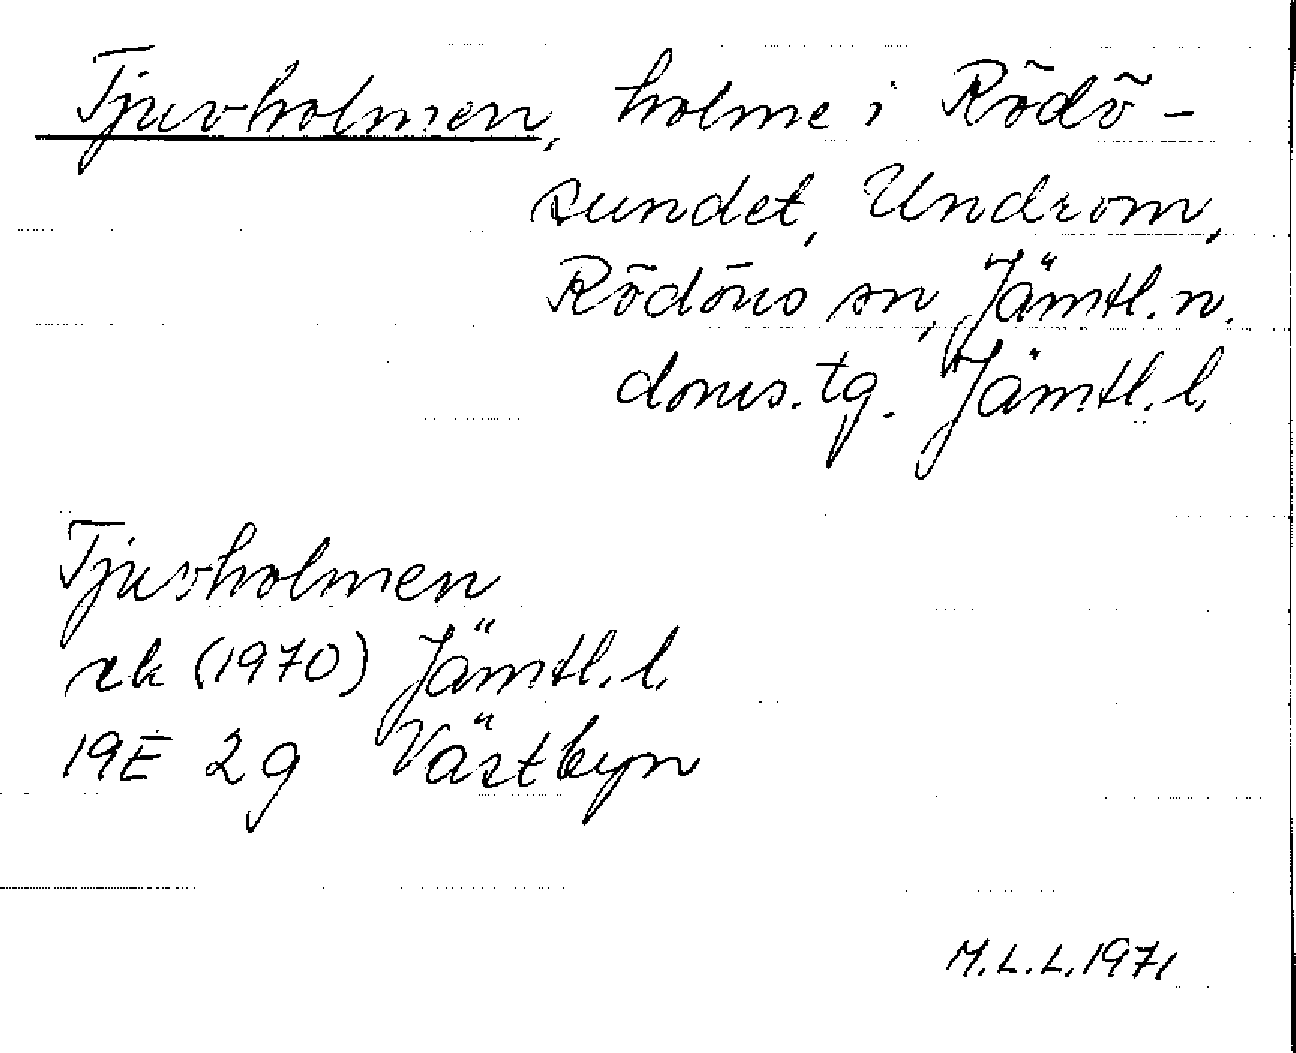 Tjuvholmen, holme i Rödö-
sundet, Undrom,
Rödöns sn, Jämtl. n.
doms. tg. Jämtl. l.
Tjuvholmen
rk (1970) Jämtl. l.
19E 2g Västbyn
M.L.L. 1971